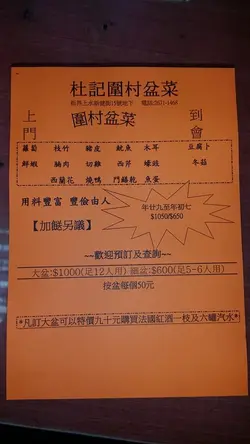 杜記圍村盆菜
上門
圍村盆菜
到會
蘿蔔 枝竹 豬皮 魷魚 木耳 豆腐卜
鮮蝦 腩肉 切雞 西芹 冬菇
西蘭花 燒鴨 門鱔乾 魚蛋
用料豐富 豐儉由人
年廿九至初七
$1050/$650
【加餸另議】
~~歡迎預訂及查詢~~
大盆:$1000(足12人用) 細盆:$600(足5-6人用)
按盆每個50元
*凡訂大盆可以特價九十元購買法國紅酒一枝及六罐汽水*